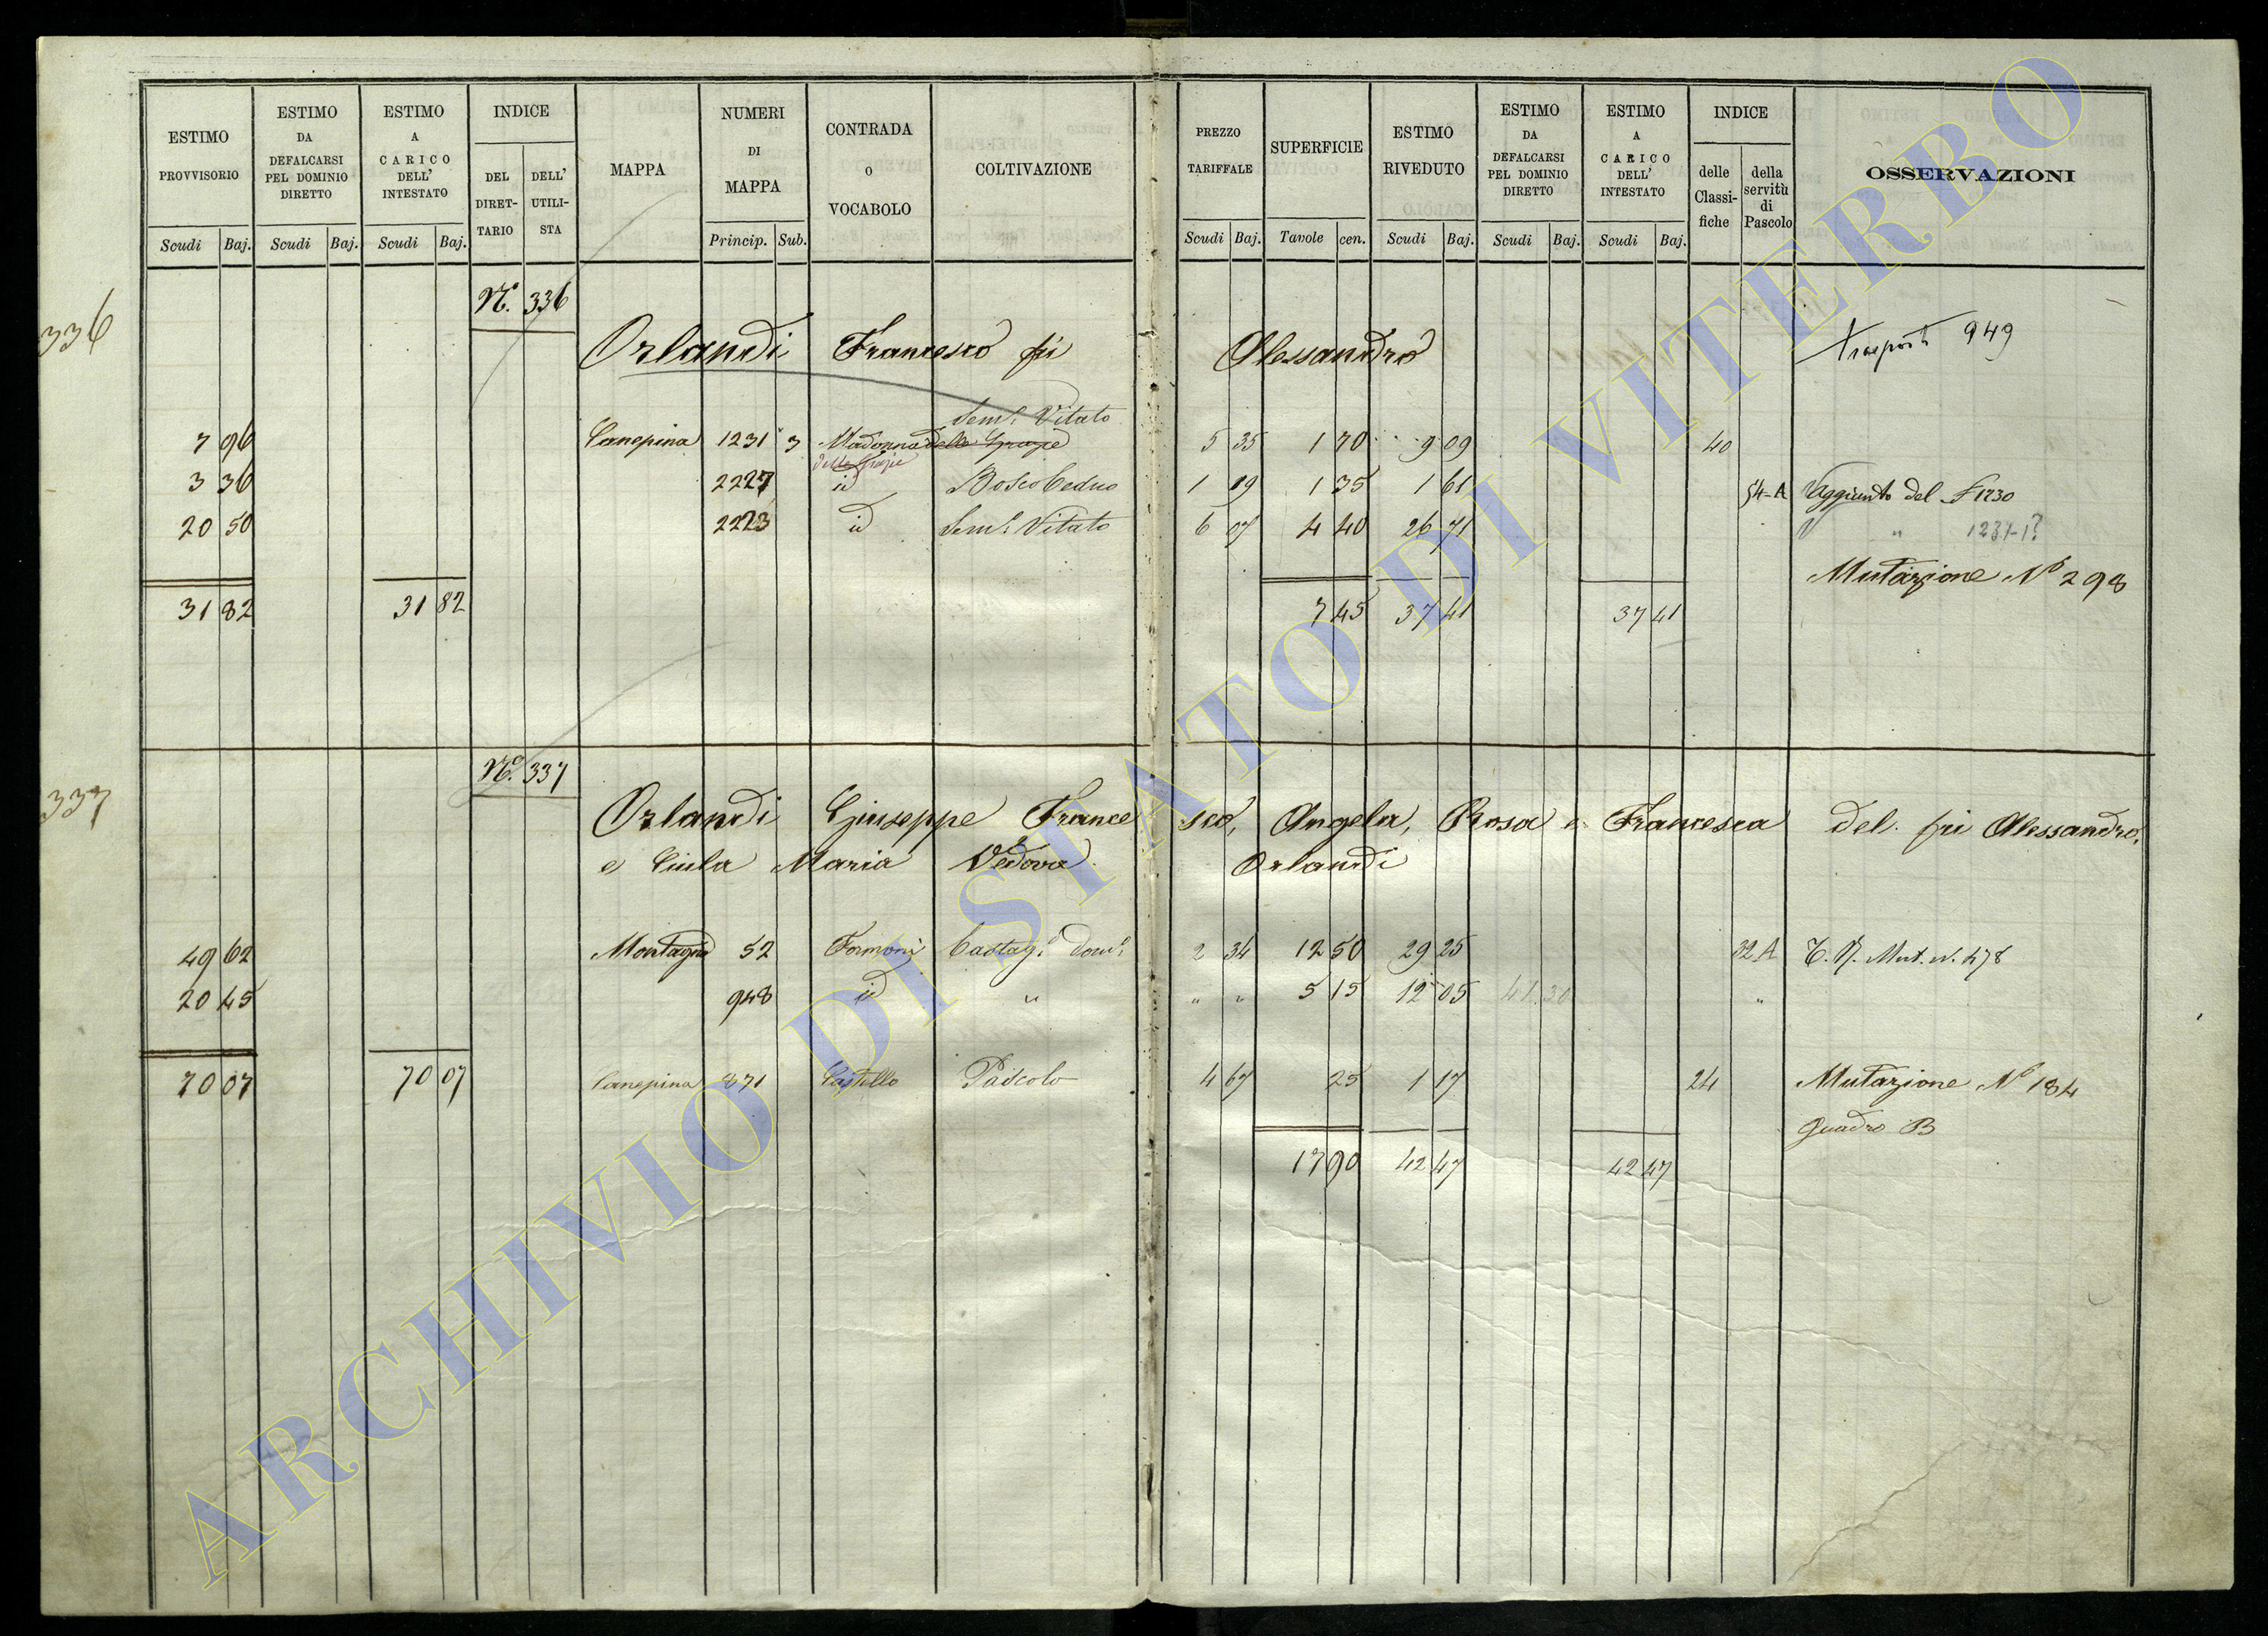 ESTIMO PROVVISORIO | ESTIMO DA DEFALCARSI PEL DOMINIO DIRETTO | ESTIMO A CARICO DELL' INTESTATO | INDICE DEL DIRET-TARIO | DELL' UTILI-STA | MAPPA | NUMERI DI MAPPA | CONTRADA O VOCABOLO | COLTIVAZIONE | PREZZO TARIFFALE | SUPERFICIE | ESTIMO RIVEDUTO | ESTIMO DA DEFALCARSI PEL DOMINIO DIRETTO | ESTIMO A CARICO DELL' INTESTATO | INDICE delle Classi-fiche | della servitù di Pascolo | OSSERVAZIONI
Scudi Baj. | Scudi Baj. | Scudi Baj. | Princip. Sub. | Scudi Baj. | Tavole cen. | Scudi Baj. | Scudi Baj. | Scudi Baj.
336 N.º 336
Orlandi Francesco fù Alessandro Trasporti 949
Sem.º Vitato
7 96 Canepina 1231 3 Madonna delle Grazie 5 35 1 70 9 09 40
delle Grazie
3 36 2227 id Bosco Ceduo 1 19 1 35 1 61 54-A Aggiunto del F 1230
20 50 2223 id Sem.º Vitato 6 07 4 40 26 71 " 1231-1?
Mutazione Nº 298
31 82 31 82 7 45 37 41 37 41
337 Nº. 337
Orlandi Giuseppe Francesco, Angela, Rosa e Francesca del fu Alessandro,
e Maria Vedova Orlandi
49 62 Montagna 52 Formoni Castag.º dom.º 2 34 12 50 29 25 32 A Mut. n. 478
20 45 948 id " " " 5 15 12 05 41.30 "
70 07 70 07 Canepina 871 Castello Pascolo 4 67 25 1 17 24 Mutazione Nº 184
Quadro B
17 90 42 47 42 47
ARCHIVIO DI STATO DI VITERBO